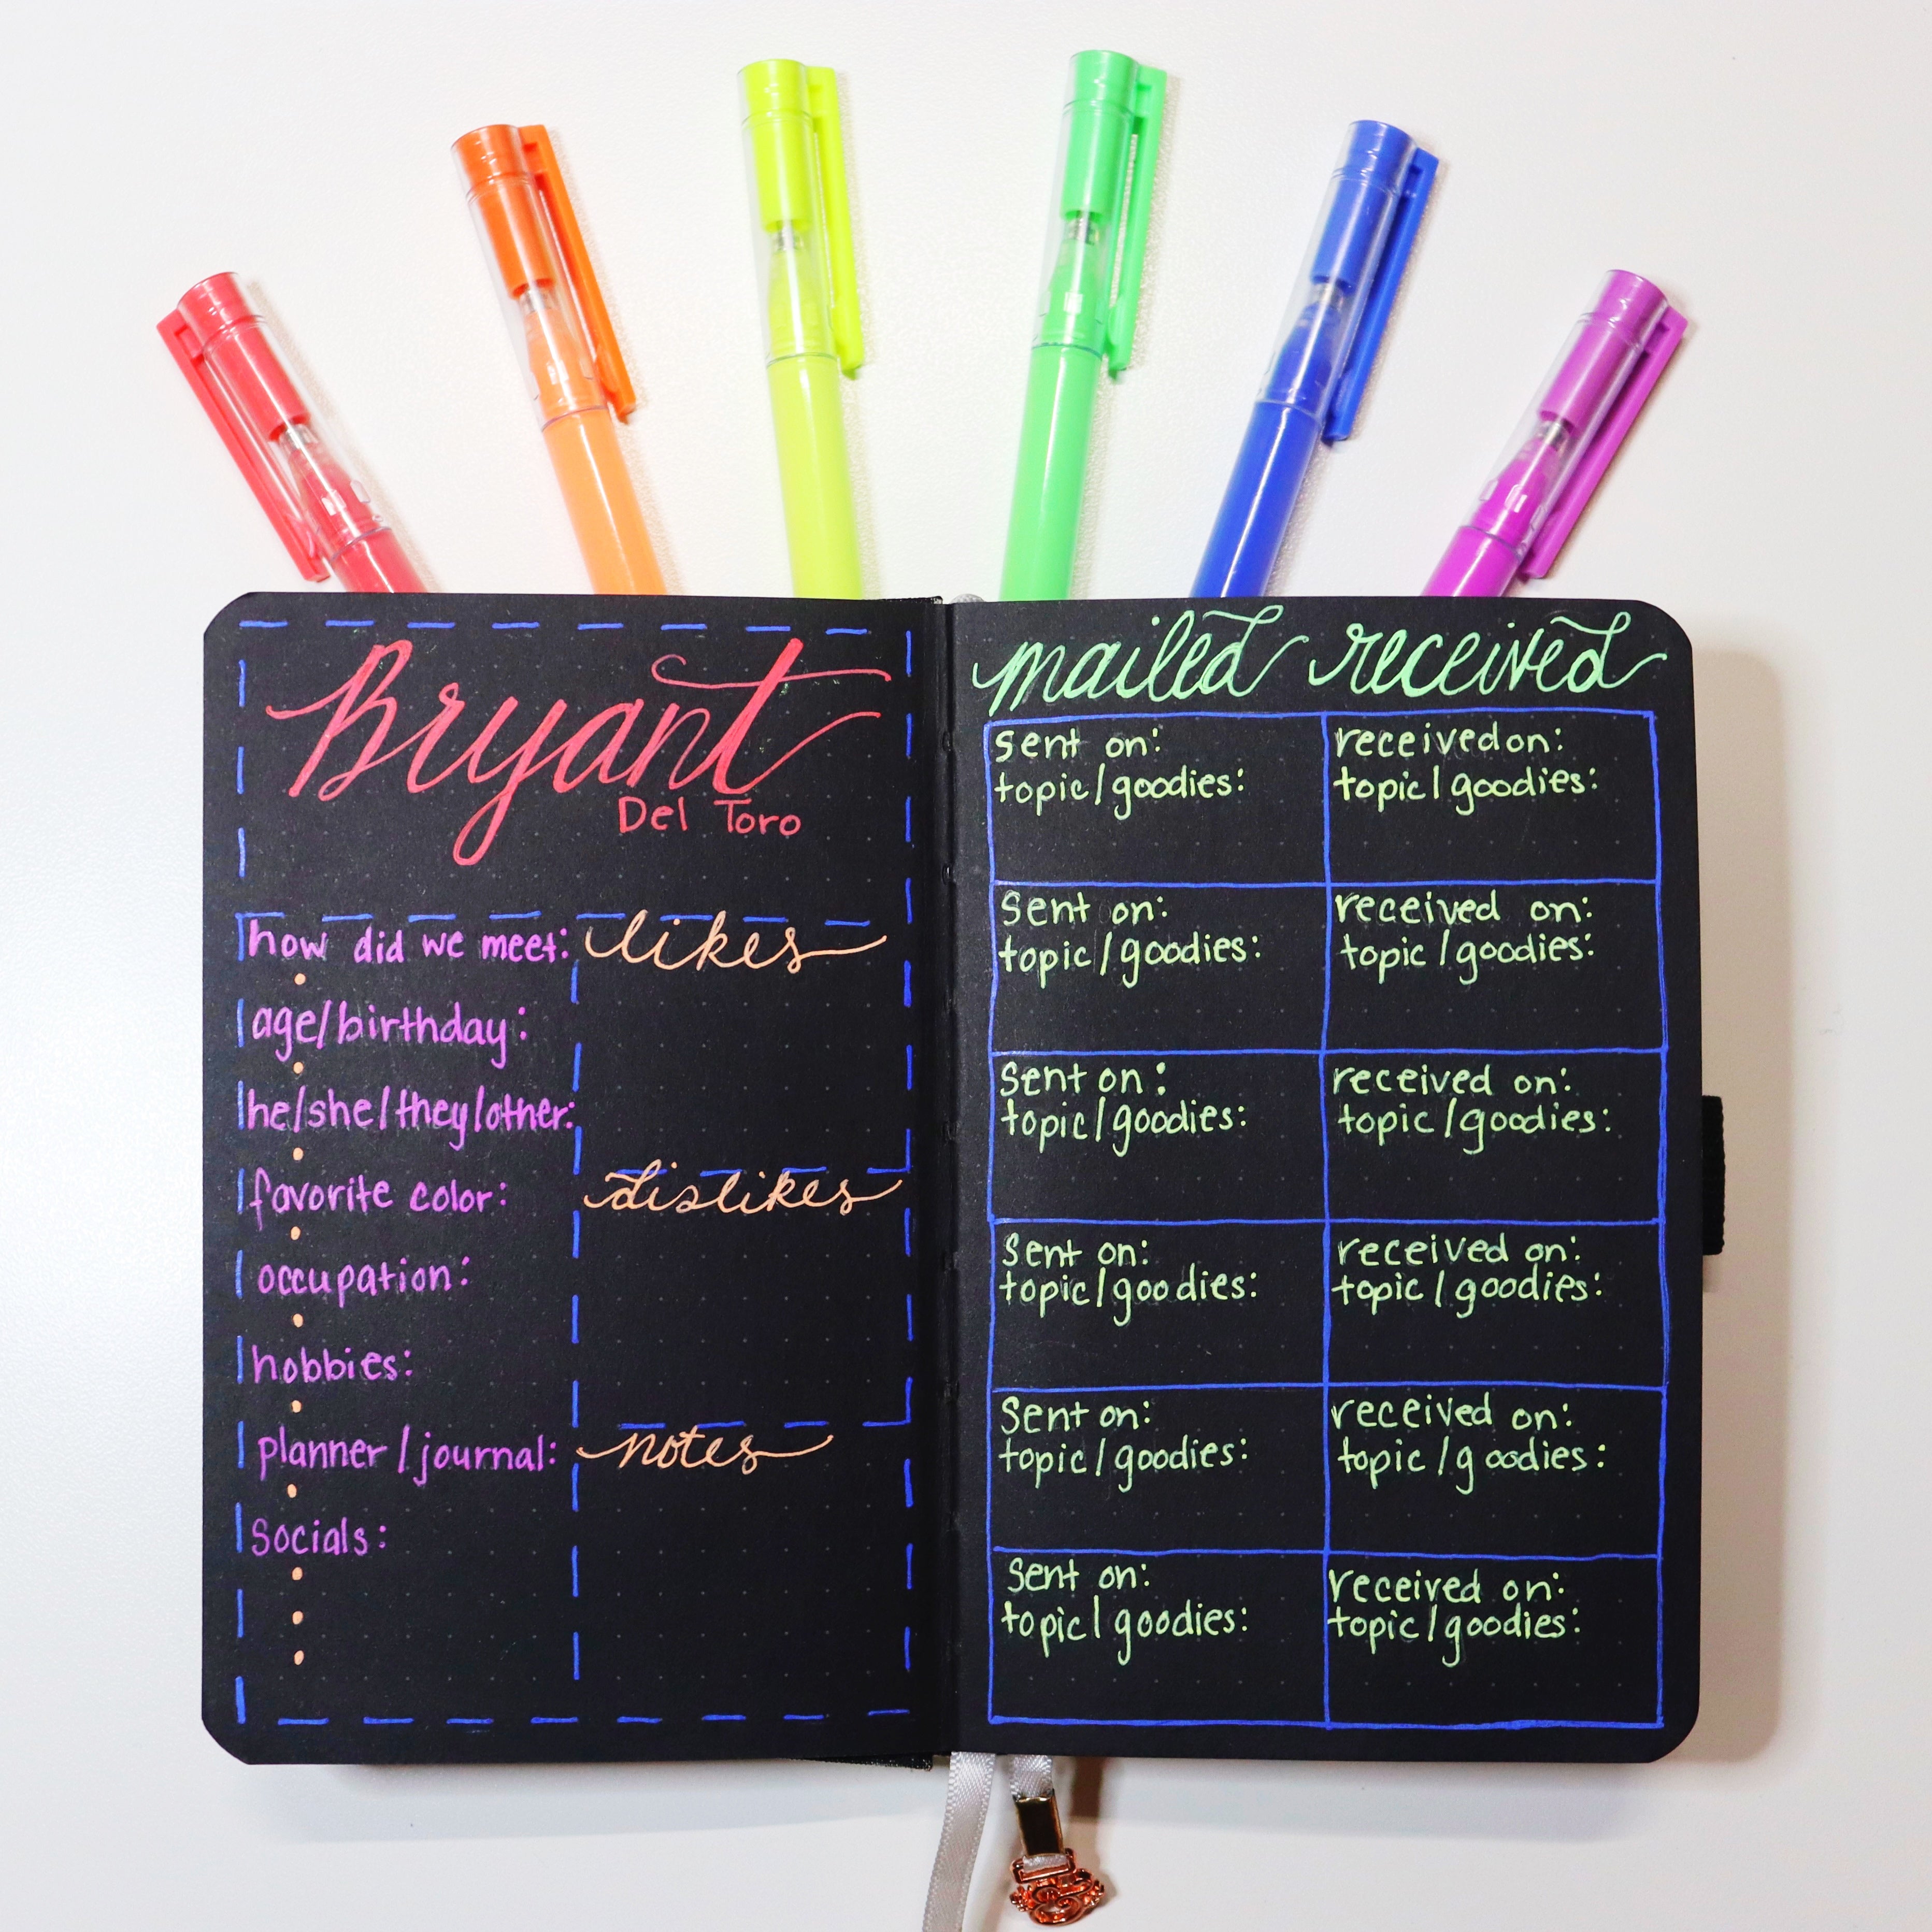 Bryant
Del Toro
how did we meet:
age/birthday:
he/she/they/other:
favorite color:
occupation:
hobbies:
planner/journal:
Socials:
likes
dislikes
notes
mailed received
sent on: received on:
topic/goodies: topic/goodies:
Sent on: received on:
topic/goodies: topic/goodies:
Sent on: received on:
topic/goodies: topic/goodies:
Sent on: received on:
topic/goodies: topic/goodies:
Sent on: received on:
topic/goodies: topic/goodies:
Sent on: received on:
topic/goodies: topic/goodies: